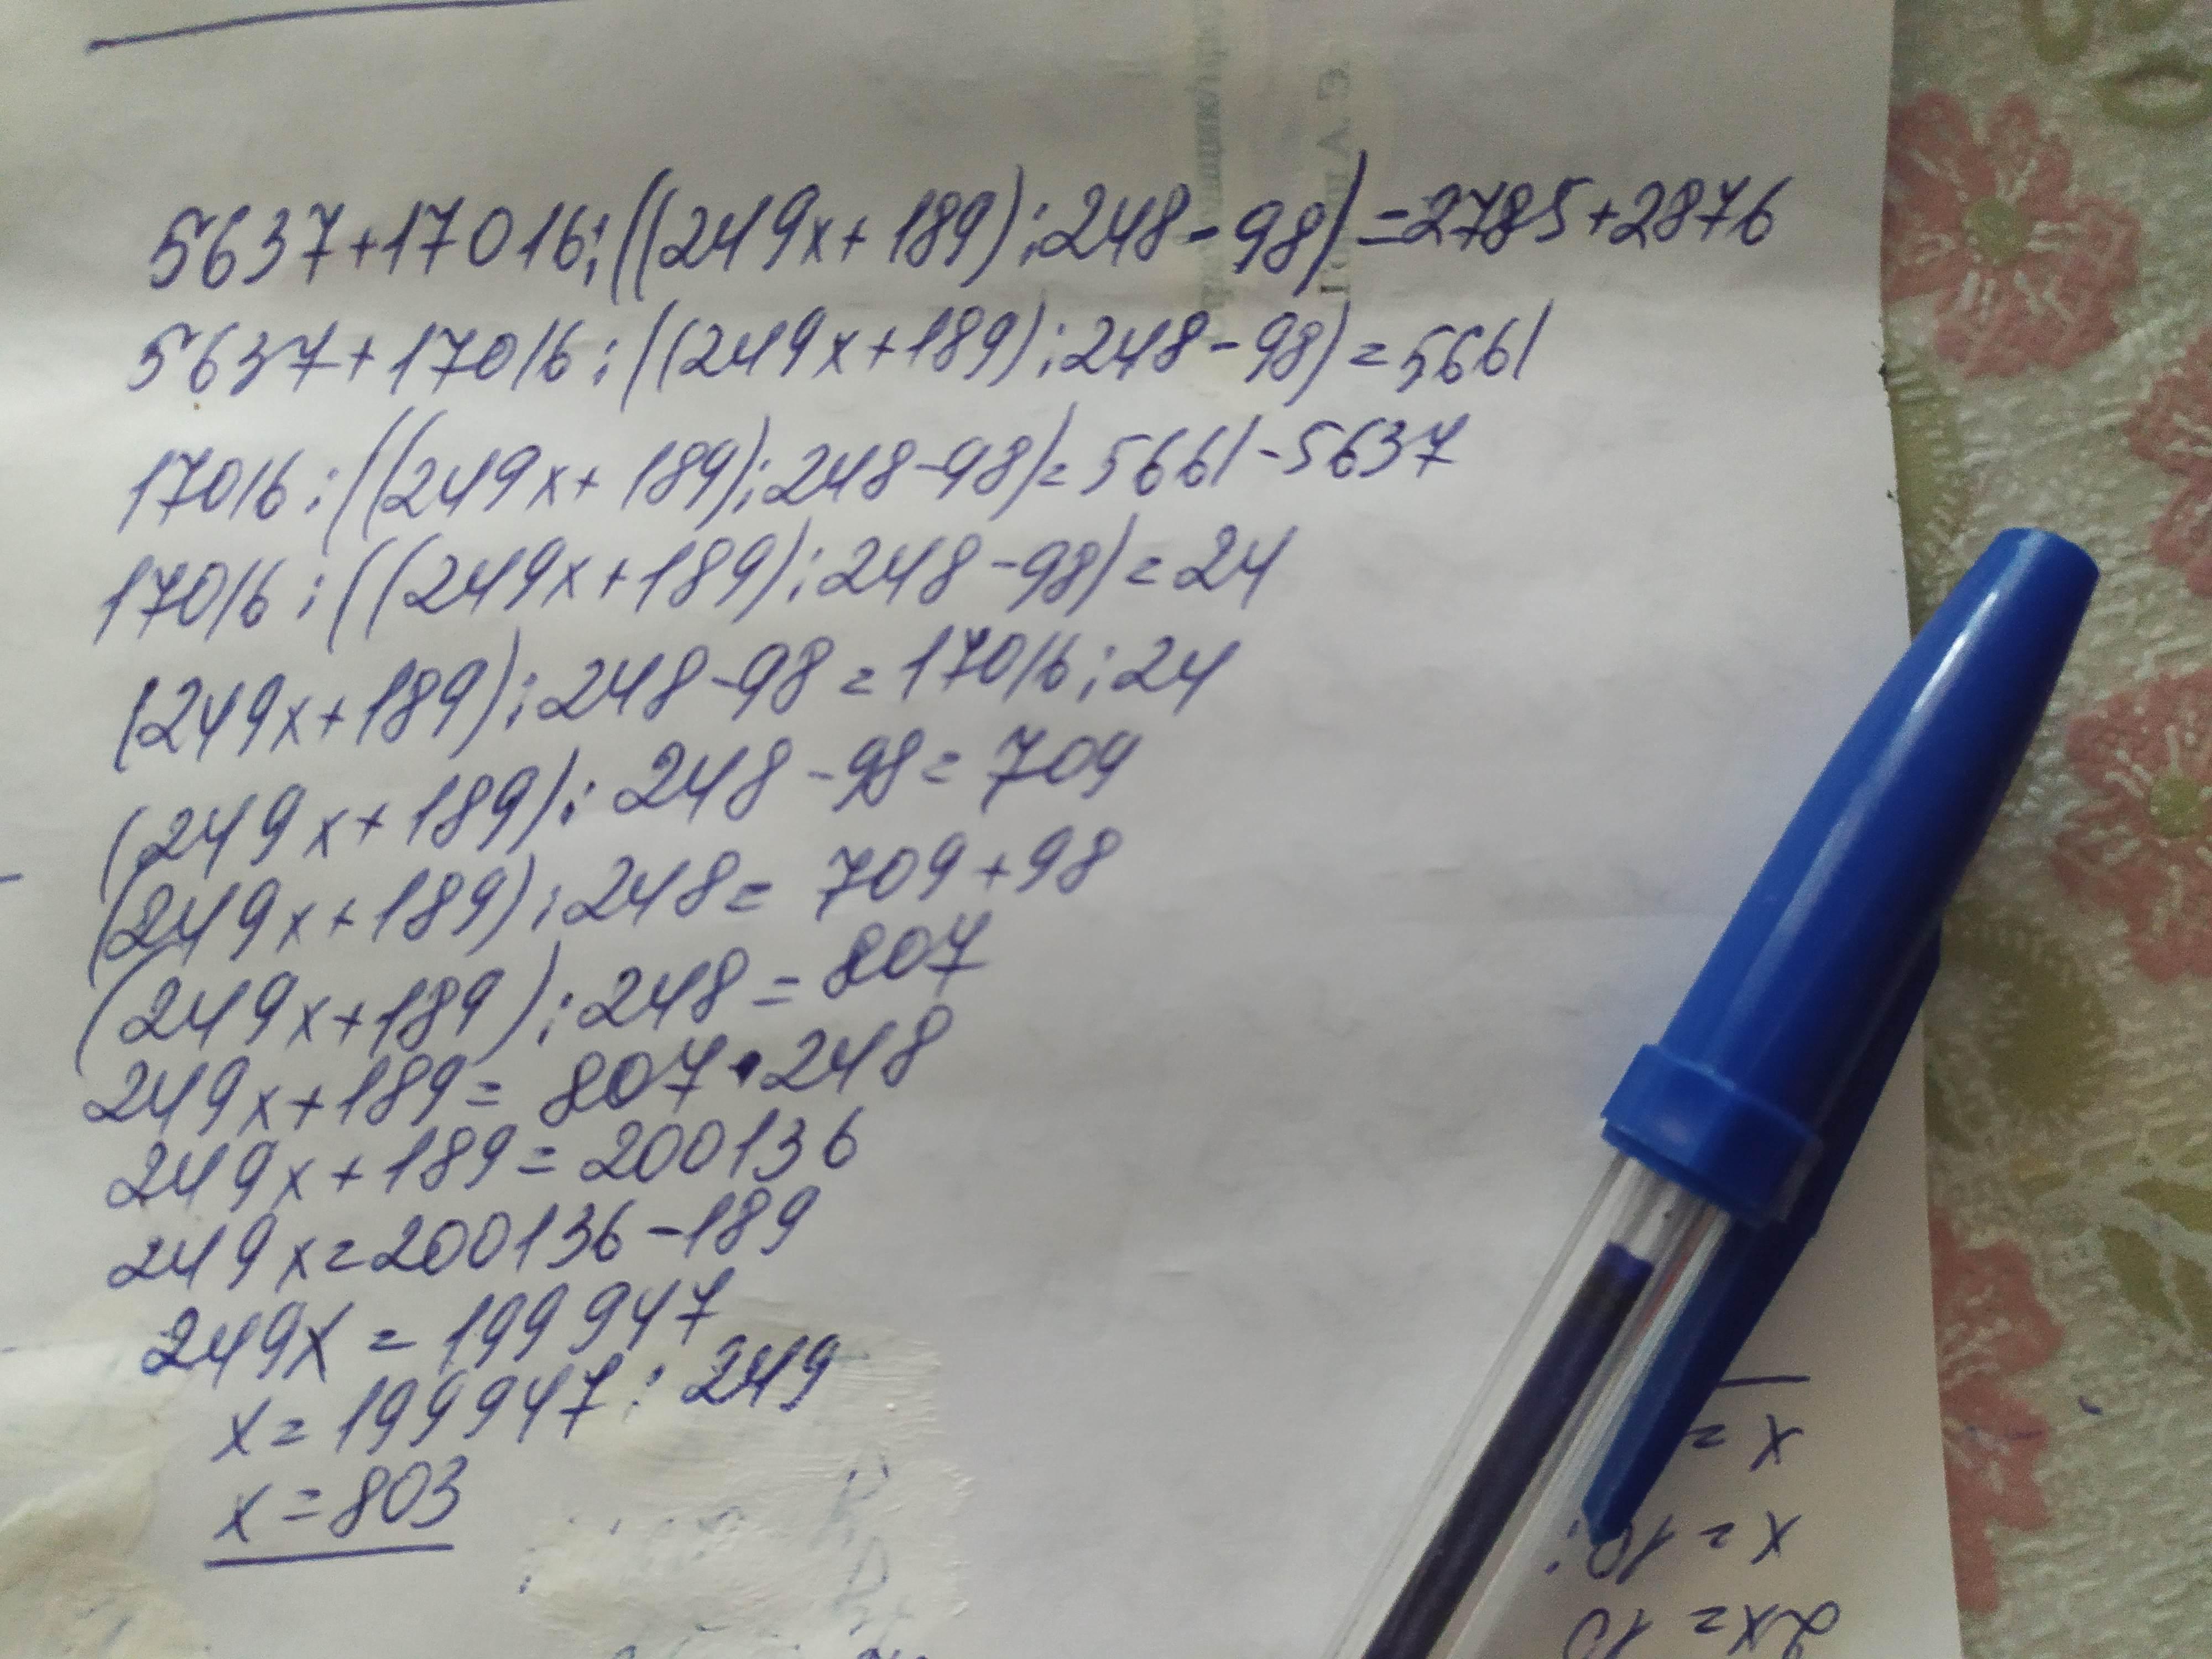 5637+17016:((249x+189):248-98)=2785+2876
5637+17016:((249x+189):248-98)=5661
17016:((249x+189):248-98)=5661-5637
17016:((249x+189):248-98)=24
(249x+189):248-98=17016:24
(249x+189):248-98=709
(249x+189):248=709+98
(249x+189):248=807
249x+189=807·248
249x+189=200136
249x=200136-189
249x=199947
x=199947:249
x=803
2x=10
x=10:
x=